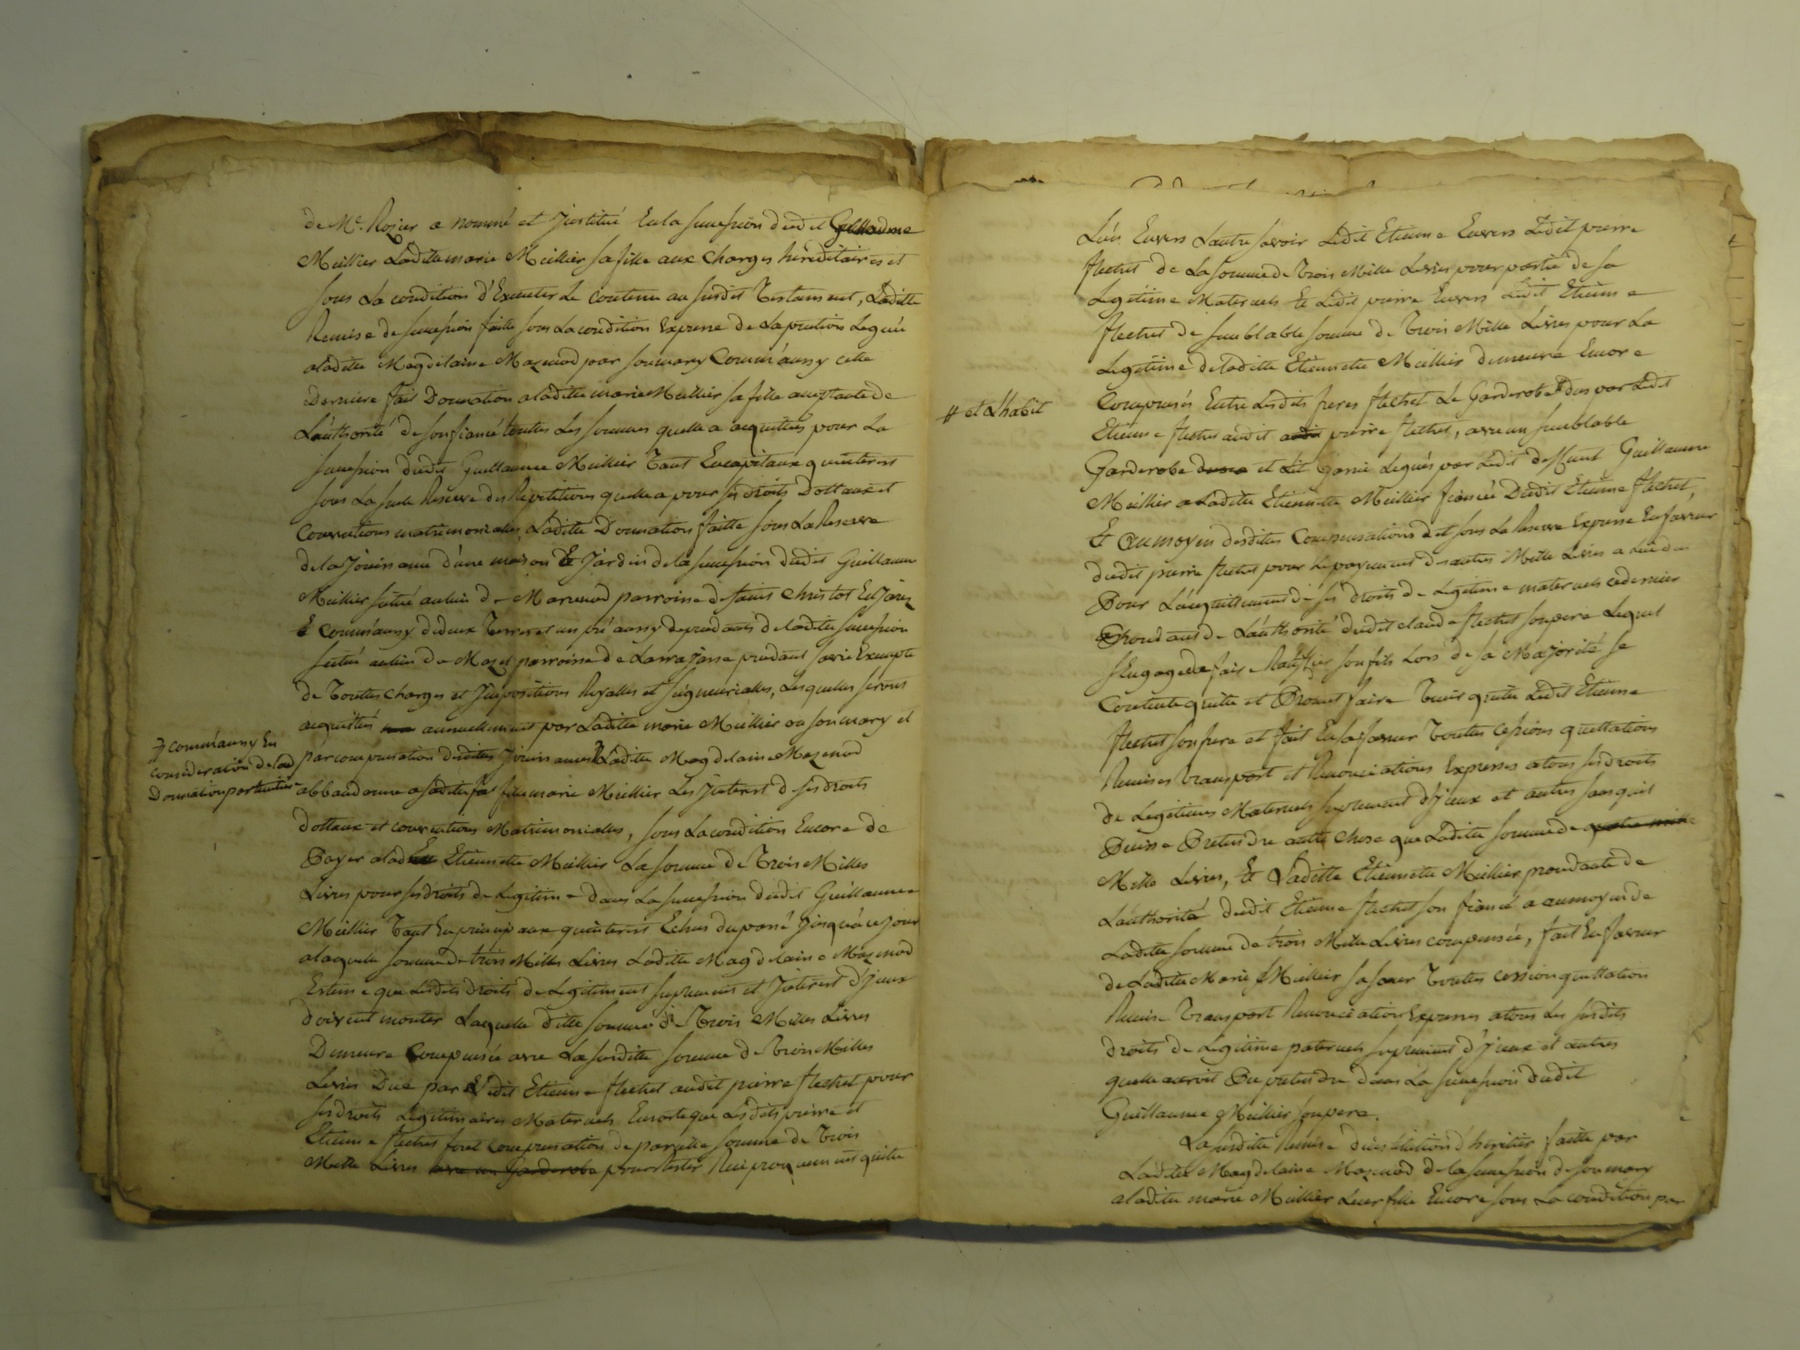 de Me. Rozier a nommé et Jnstitué En la succession dudit Guillaume
Meillier Laditte marie Meillier sa fille aux Charges héréditaires et
sous La condition d'Executer Le contenu au susdit Testament, Laditte
Remise de succession faitte sous La condition Expresse de La pention Leguée
a laditte Magdelaine Mazenod par son mary Comm'aussy cette
Derniere fait Donnation a laditte marie Meillier sa fille acceptante de
L'authorité de son fiancé touttes Les sommes quelle a acquittées pour La
succession dudit Guillaume Meillier Tant En capitaux qu'interest
sous La seule Reserve des Repetitions quelle a pour ses droits Dottaux et
Convantions matrimonialles, Laditte Donnation faitte sous La Reserve
de la Jouissance d'une maison Et Jardin de la succession dudit Guillaume
Meillier situé au lieu de Marcenod parroisse de saint Christot En Jarez
& Comm'aussy de deux Terres et un pré aussy dependants de laditte succession
situé au lieu de Mazel parroisse de Larrajasse pendant sa vie Exempte
de Touttes charges et Jmpositions Royalles et seigneurialles, Lesquelles seront
acquittées annuellement par Laditte marie Meillier ou son mary et
╪ comm'aussy En
consideration de lad
Donnation par compensation desdittes Jouissances Laditte Magdelaine Mazenod
abbandonne a saditte fille marie Meillier Les Jnterest de ses droits
dottaux et convantions Matrimonialles, sous La condition Encore de
Payer a lad Etiennette Meillier La somme de Trois Milles
Livres pour ses droits de Legitime dans La succession dudit Guillaume
Meillier Tant En principaux qu'interest Echus du passé Jusqu'à ce Jour
a laquelle somme de trois Milles Livres Laditte Magdelaine Mazenod
Estime que lesdits droits de Legitime et suplement et Jnterest d'Jceux
doivent monter Laquelle ditte somme de Trois Milles Livres
Demeure Compensée avec La susditte somme de Trois Milles
Livres Due par Ledit Etienne flechet audit pierre flechet pour
ses droits Legitimaires Maternels En sorte que Lesdits pierre et
Etienne flechet font compensation de pareille somme de Trois
Mille Livres avec un Garderobe pour rester Reciproquement quitte
L'un Envers L'autre sçavoir Ledit Etienne Envers Ledit pierre
flechet de La somme de Trois Mille Livres pour partie de sa
Legitime Maternels Et Ledit pierre Envers Ledit Etienne
flechet de semblable somme de Trois Mille Livres pour La
Legitime de laditte Etiennette Meillier Demeure Encore
# et L'habit
Compensés Entre Lesdits freres flechet Le Garderobe # dus par Ledit
Etienne flechet audit pierre flechet, avec un semblable
Garderobe et Lit Garni Legués par Ledit deffunt Guillaume
Meillier a Laditte Etiennette Meillier fiancée Dudit Etienne flechet,
Et Au moyen desdittes Compensations et sous La Reserve Expresse En faveur
dudit pierre flechet pour Le payement des autres Mille Livres a lui dus
Pour L'acquittement de ses droits de Legitime maternels ce dernier
Procedant de L'authorité dudit claude flechet son pere Lequel
s'Engage de faire Ratiffier son fils Lors de sa Majorité se
Contente quitte et Promet faire Tenir quitte Ledit Etienne
flechet son frere et fait En sa faveur Touttes cessions quittations
Remises transport et Renonciations Expresses a tous ses droits
de Legitimes Maternels suplement d'Jceux et autres sans qu'il
Puisse Pretendre autre Chose que Laditte somme de
Mille Livres, Et Laditte Etiennette Meillier procedante de
L'authorité dudit Etienne flechet son fiancé a au moyen de
Laditte somme de trois Mille Livres compensée, fait En faveur
de Laditte Marie Meillier sa sœur Touttes cession quittation
Remise Transport Renonciation Expresses a tous Les susdits
droits de Legitime paternels suplement d'Jceux et autres
quelle auroit Pu pretendre dans La succession dudit
Guillaume Meillier son pere.
La susditte Remise d'institution d'heritier faitte par
Laditte Magdelaine Mazenod de la succession de son mary
a laditte marie Meillier Leur fille Encore sous La condition par